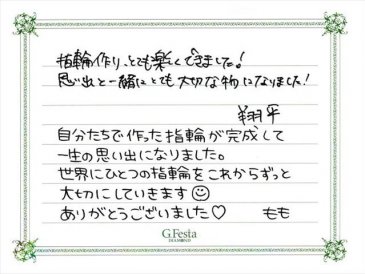 指輪作り、とても楽しくできました!
思い出と一緒にとても大切な物になりました!
翔平
自分たちで作った指輪が完成して
一生の思い出になりました。
世界にひとつの指輪をこれからずっと
大切にしていきます☺
ありがとうございました♡ もも
G.Festa
DIAMOND